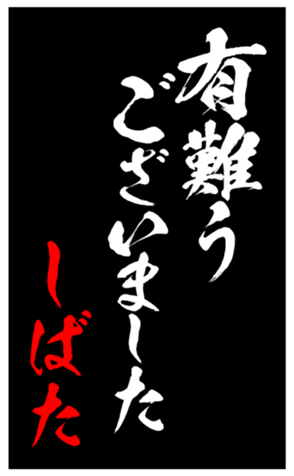 有難う
ございました
しばた